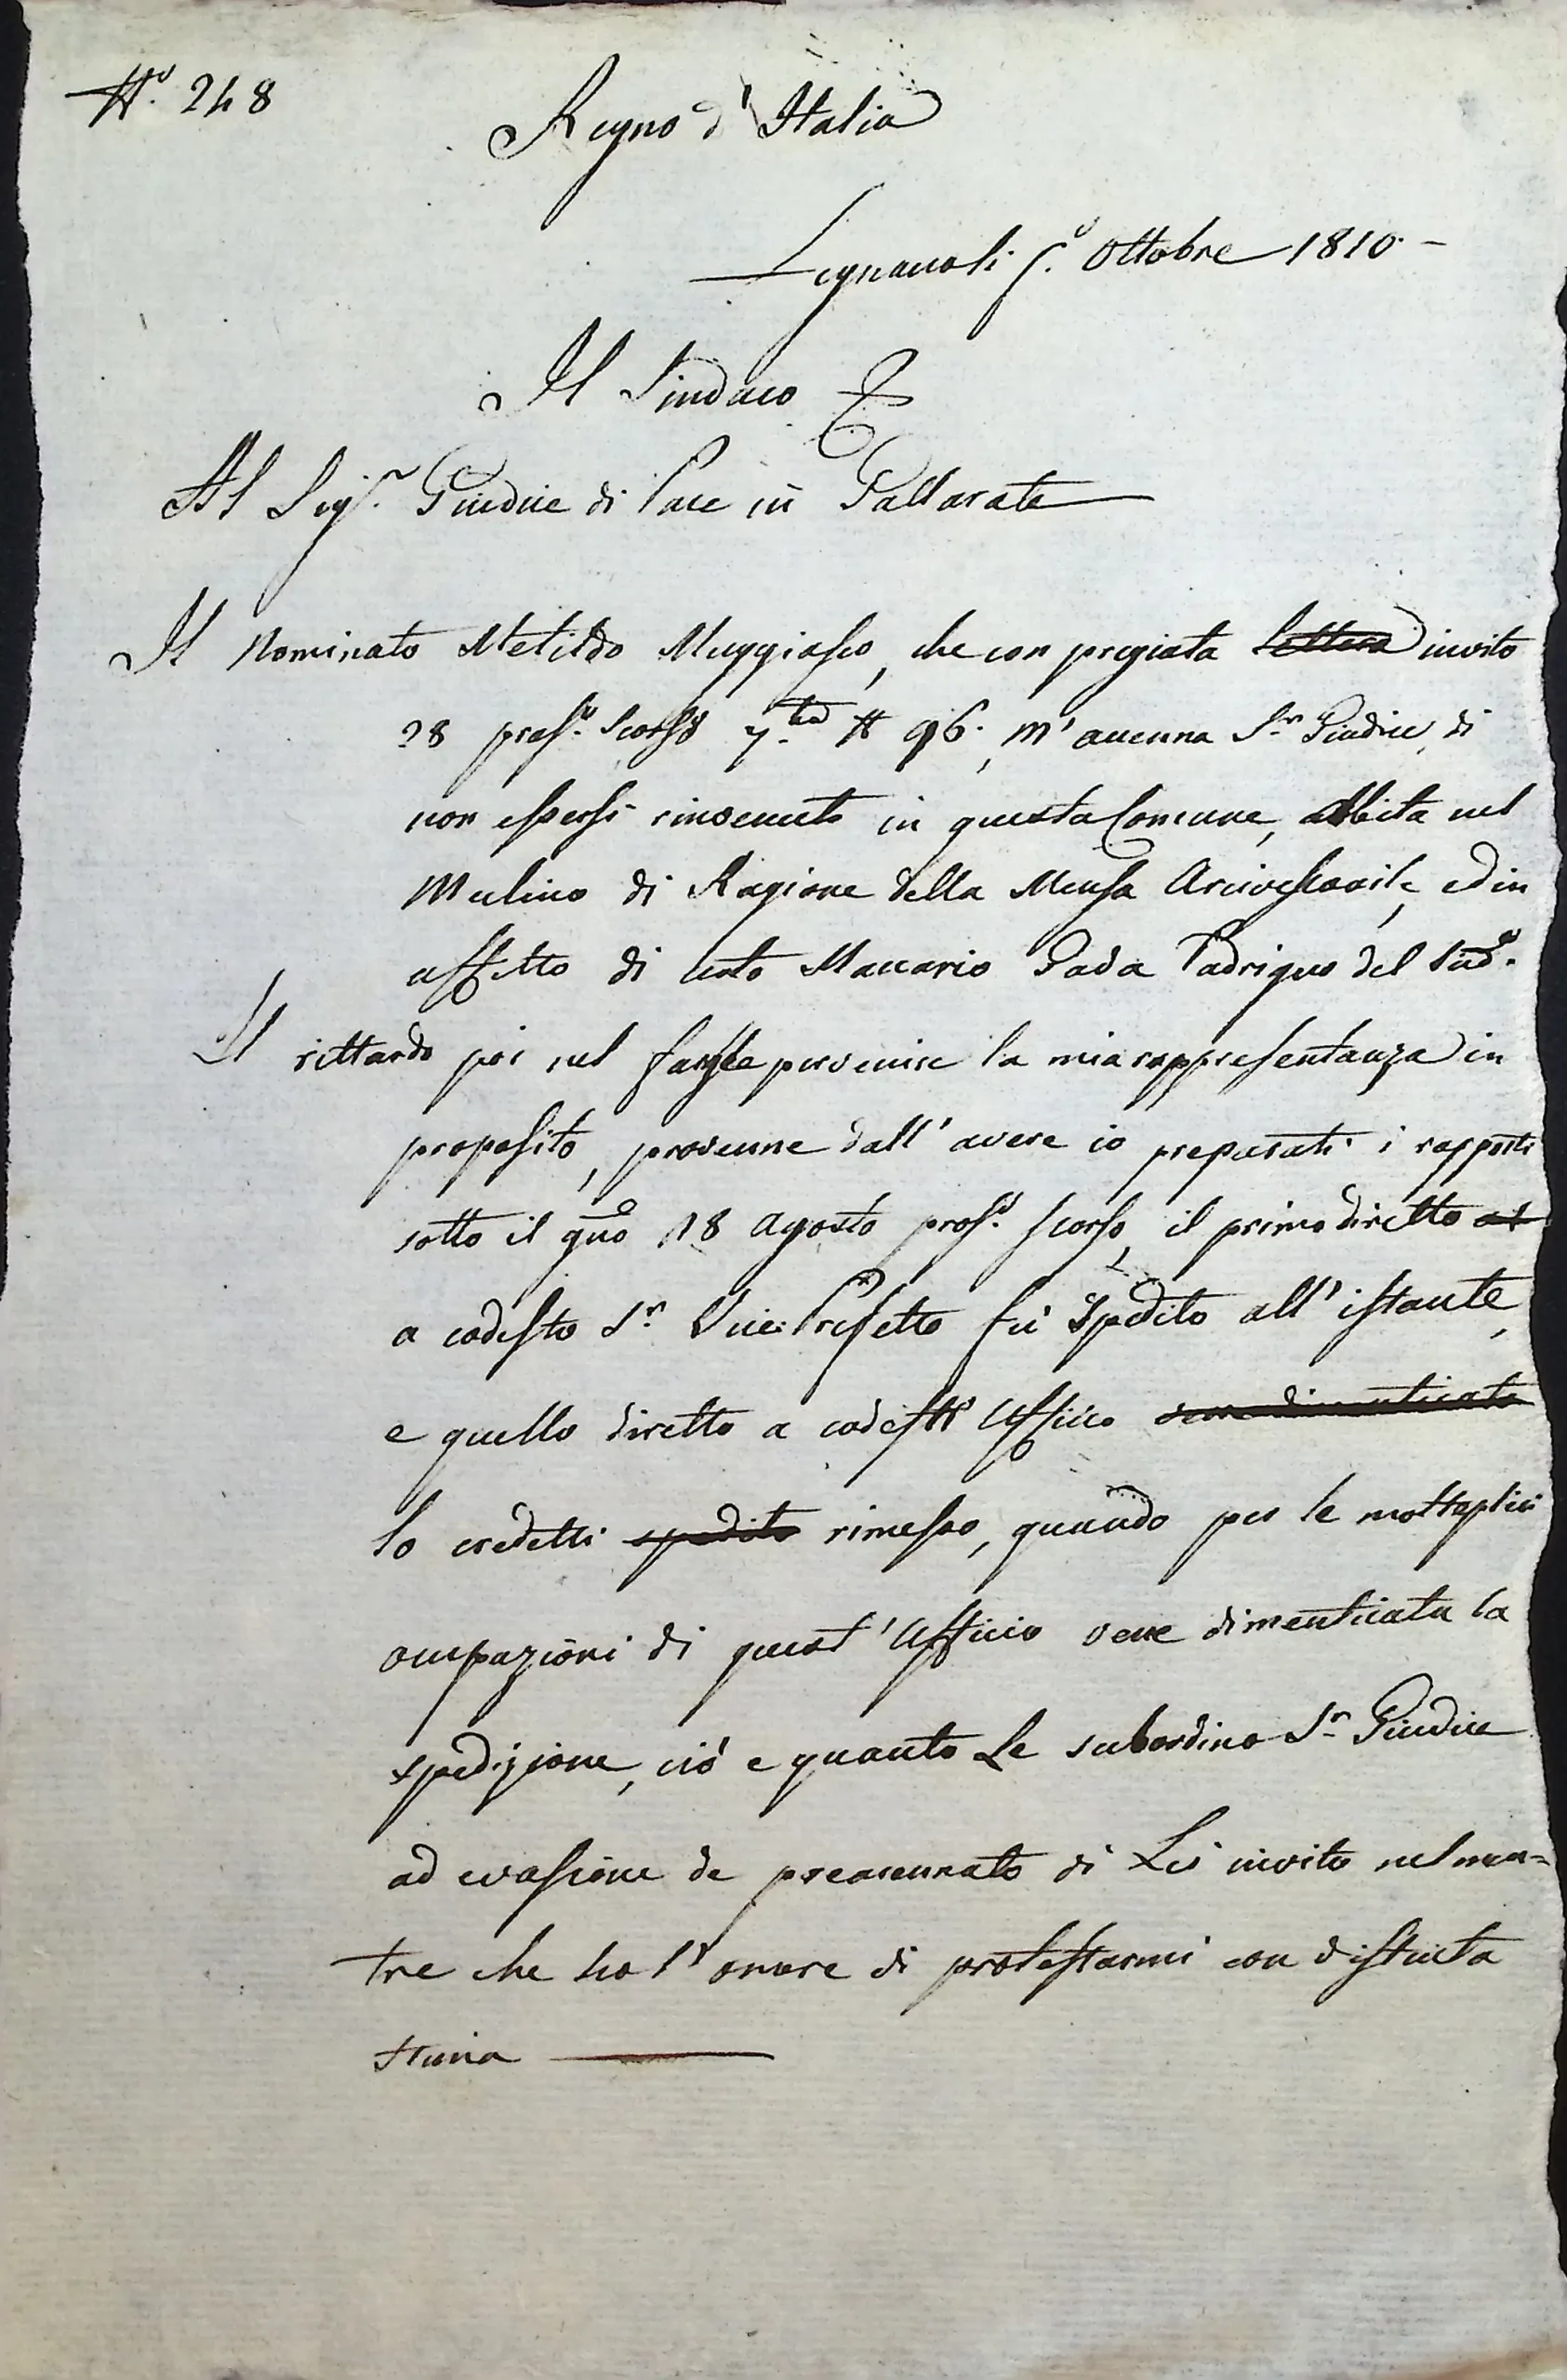 N.° 248
Regno d'Italia
Legnanoli 5.° Ottobre 1810.
Il Sindaco
Al Sig.r Giudice di Pace in Gallarate
Il Nominato Metildo Muggiasco, che con pregiata lettera invito
28 pros.° scorso 7.bre N 96., m'accenna S.r Giudice, di
non essersi rinvenuto in questa Comune, abbita nel
Mulino di Ragione della Mensa Arcivescovile, ed in
affitto di certo Maccario Gada Padrigno del sud.°
Il rittardo poi nel farle pervenire la mia rappresentanza in
proposito, provenne dall'avere io preparati i rapporti
sotto il gno 18 Agosto pros.° scorso, il primo diretto al
a codesto S.r Vice Prefetto fù spedito all'istante,
e quello diretto a codest' Ufficio vene dimenticato
lo credetti spedito rimesso, quando per le molteplici
occupazioni di quest'Ufficio vene dimenticata la
spedizione, ciò e quanto Le subordino S.r Giudice
ad evasione de preacennato di Lei invito nel men=
tre che ho l'onore di protestarmi con distinta
stima